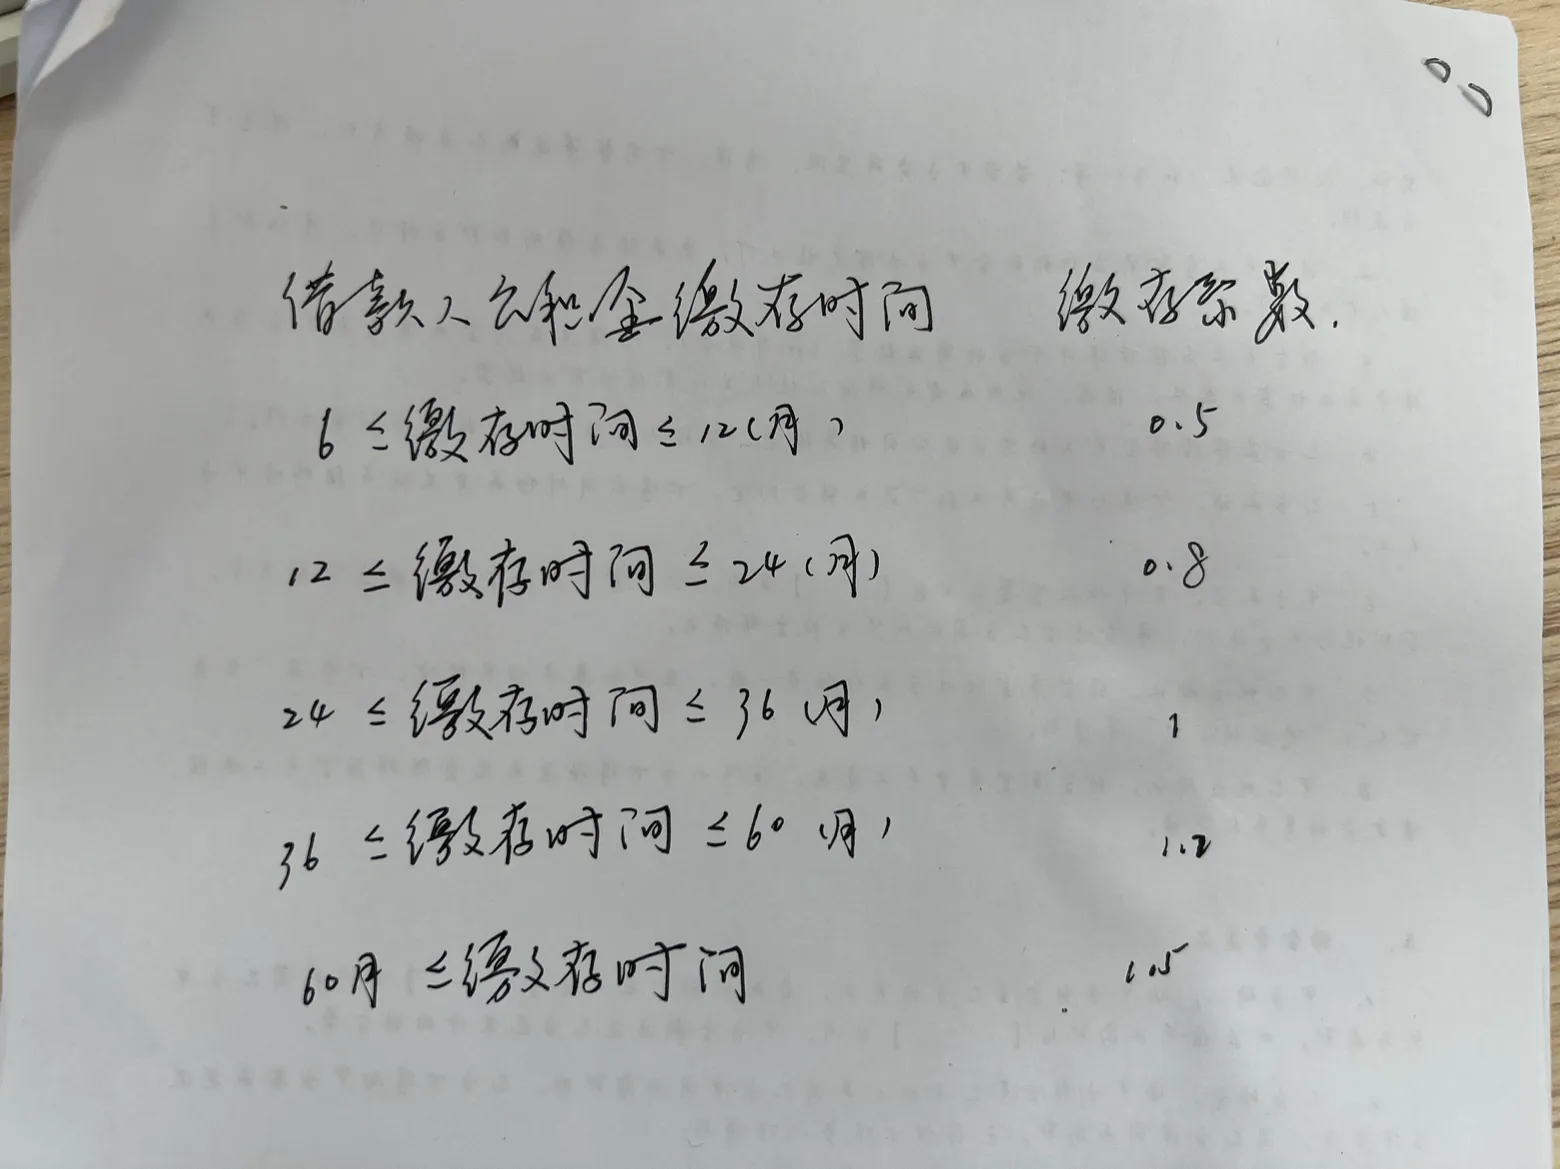 借款人公积金缴存时间 缴存系数.
6 ≤ 缴存时间 ≤ 12(月) 0.5
12 ≤ 缴存时间 ≤ 24(月) 0.8
24 ≤ 缴存时间 ≤ 36(月) 1
36 ≤ 缴存时间 ≤ 60(月) 1.2
60月 ≤ 缴存时间 1.5